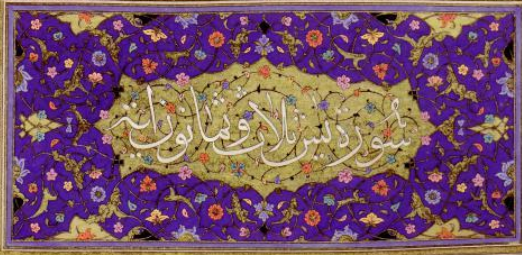 سورة يس ثلاث وثمانون اية